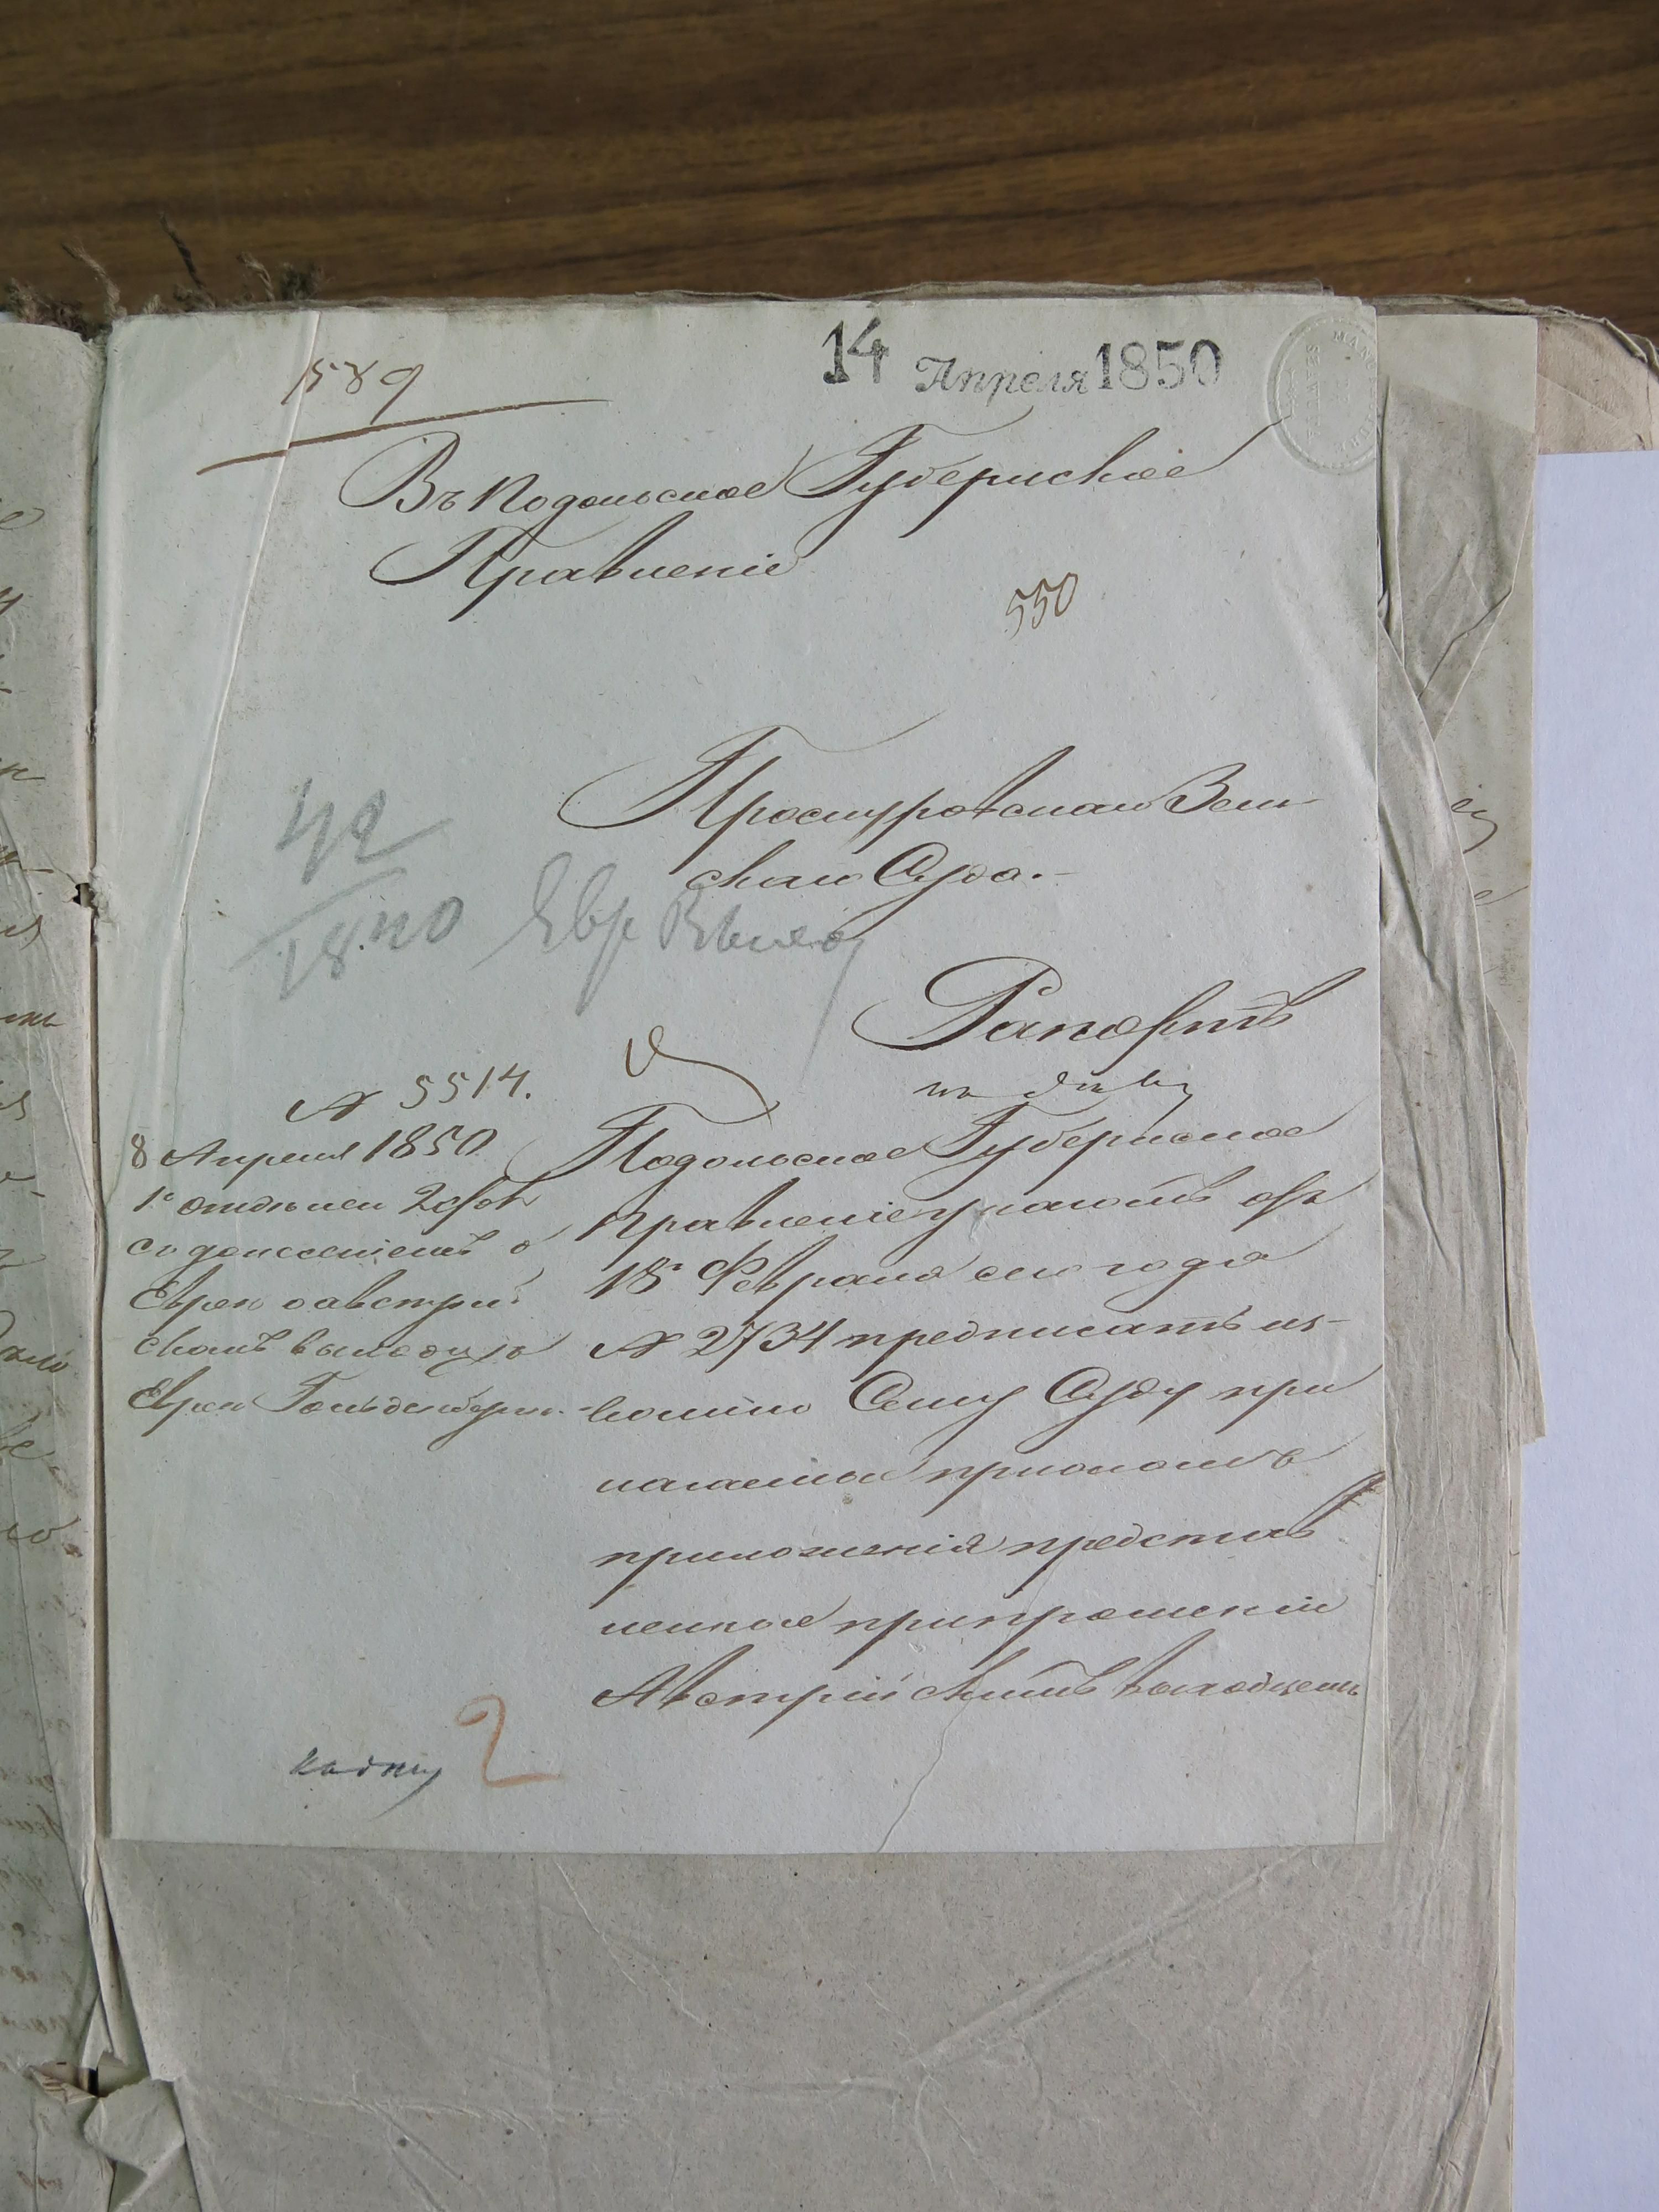 14 Апреля 1850
1589
Въ Подольское Губернское
Правленіе
550
Проскуровскаго Зем
скаго Суда.-
Евр
Рапортъ
къ дѣлу
№ 5514.
8 Апреля 1850
1º отделен 2 стол
съ донесеніемъ о
Евреи о австрій
скомъ выходцѣ
Евреи
Подольское Губернское
Правленіе указомъ отъ
18º Февраля сего года
№ 2734 предписать из-
волило Сему Суду при
приложенія представ
ленные припрошеніи
Австрійскимъ выходцемъ
къ дѣлу 2